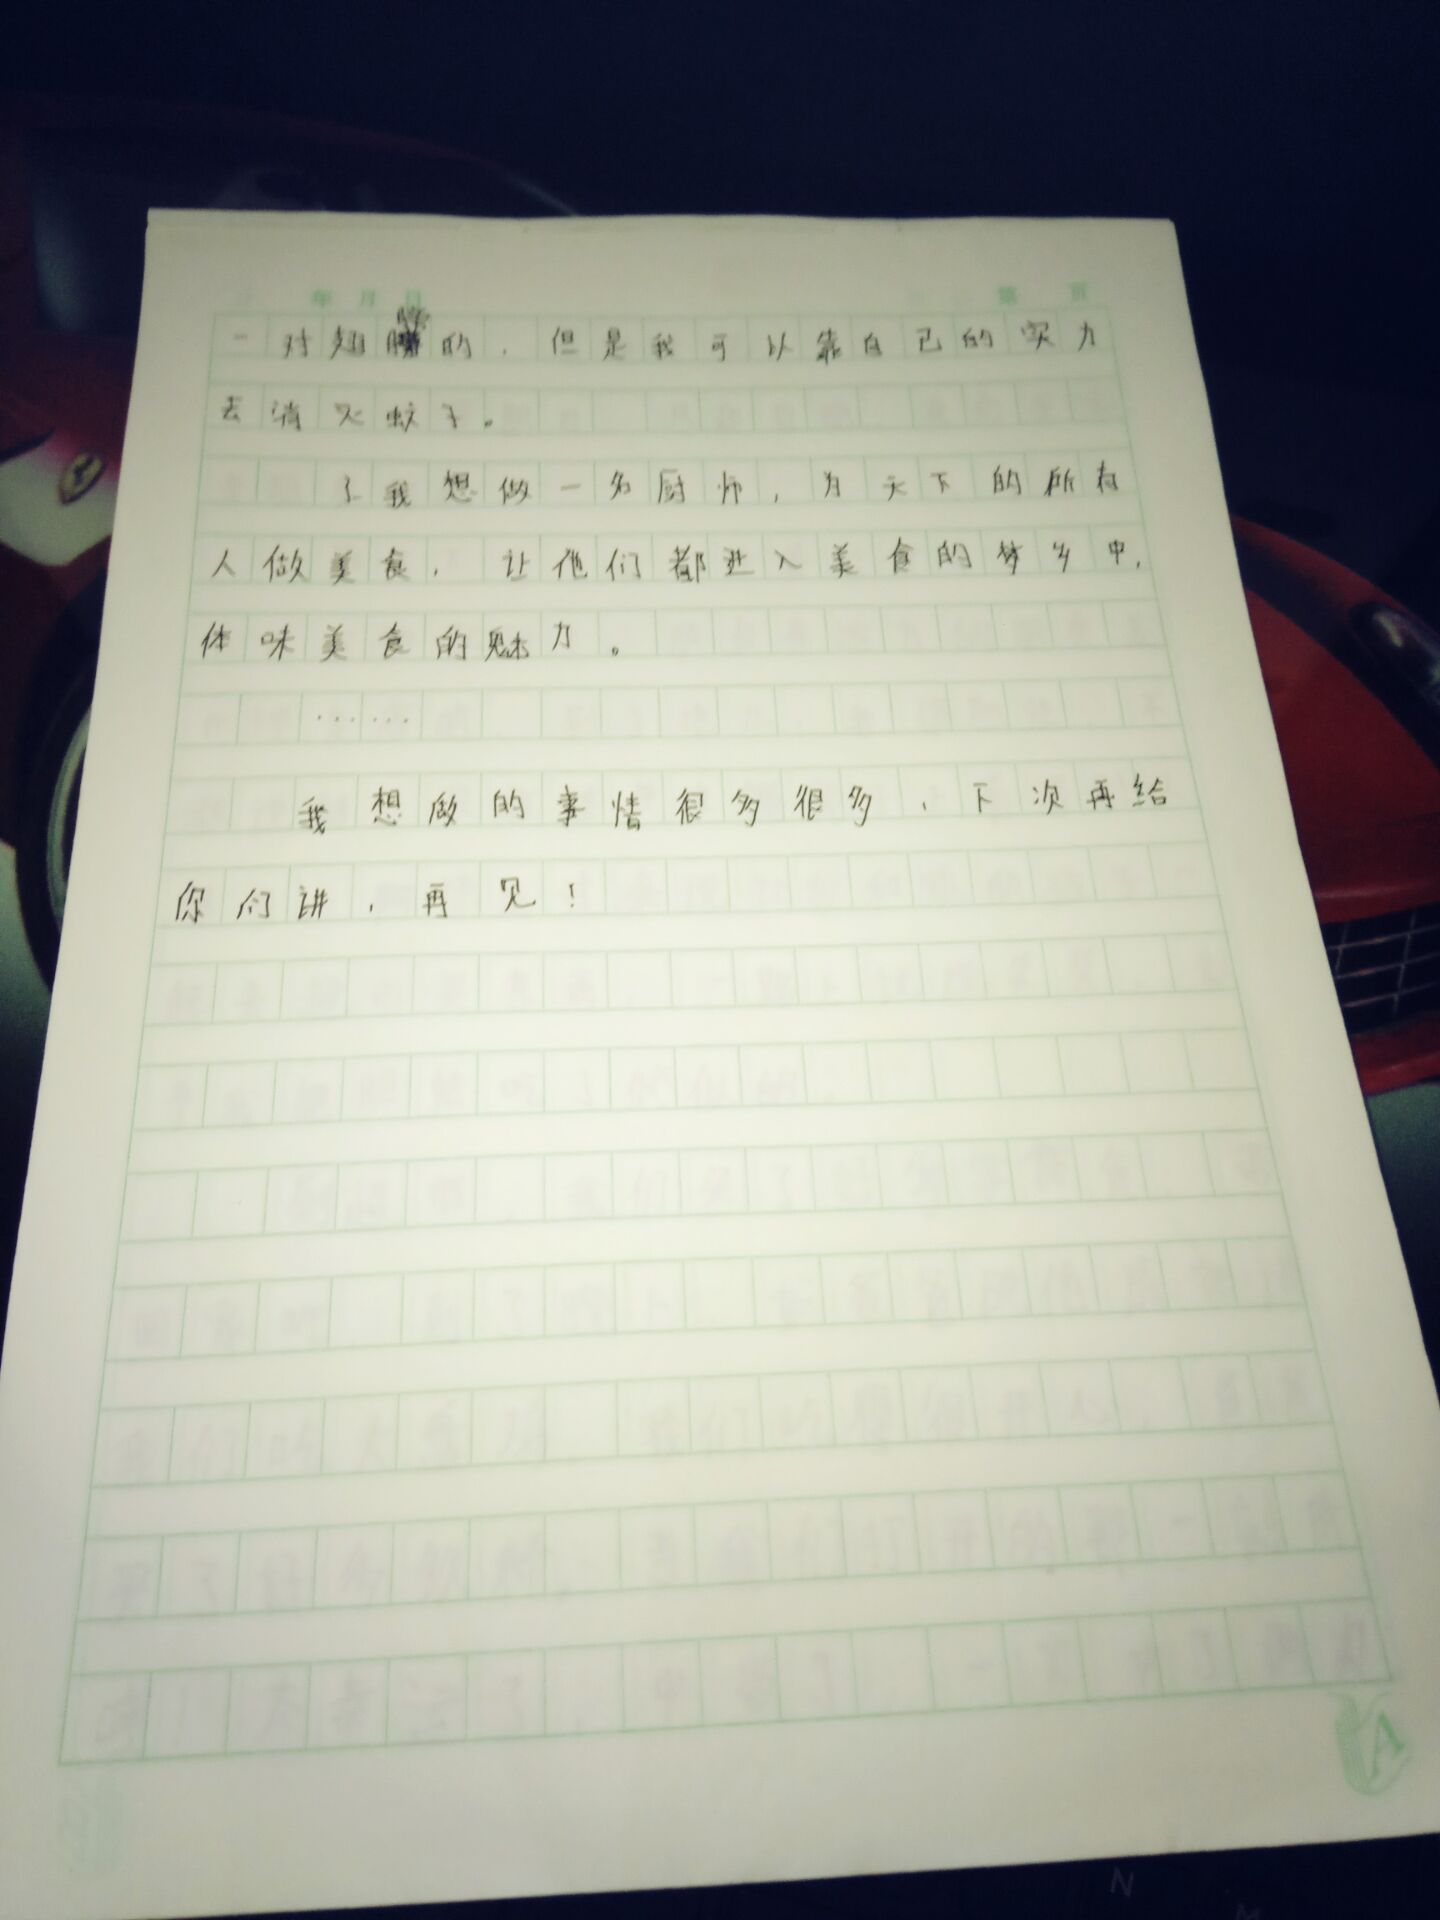 年 月 日 第 页
一对翅膀的，但是我可以靠自己的实力
去消灭蚊子。
了我想做一名厨师，为天下的所有
人做美食，让他们都进入美食的梦乡中，
体味美食的魅力。
……
我想做的事情很多很多，下次再给
你们讲，再见！